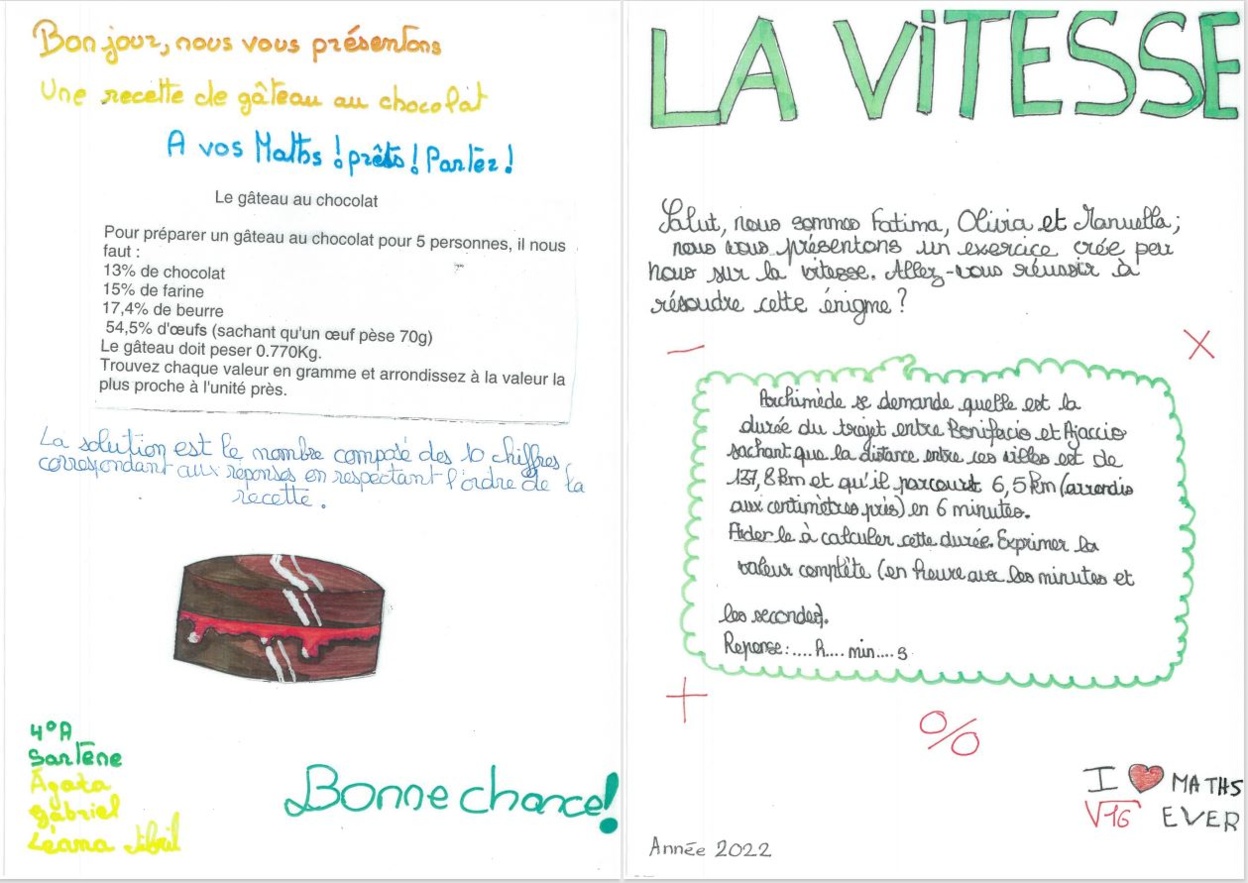 Bonjour, nous vous présentons
Une recette de gâteau au chocolat
A vos Maths ! prêts ! Partez !
Le gâteau au chocolat
Pour préparer un gâteau au chocolat pour 5 personnes, il nous
faut :
13% de chocolat
15% de farine
17,4% de beurre
54,5% d'œufs (sachant qu'un œuf pèse 70g)
Le gâteau doit peser 0.770Kg.
Trouvez chaque valeur en gramme et arrondissez à la valeur la
plus proche à l'unité près.
La solution est le nombre composé des 10 chiffres
correspondant aux réponses en respectant l'ordre de la
recette.
4°A
Sartène
Àgata
gabriel
Léana Abril
Bonne chance!
LA ViTESSE
Salut, nous sommes Fatima, Olivia et Manuella;
nous vous présentons un exercice crée peu
nous sur la vitesse. Allez-vous réussir à
résoudre cette énigme ?
− ×
Archimède se demande quelle est la
durée du trajet entre Bonifacio et Ajaccio
sachant que la distance entre ces villes est de
137,8 km et qu'il parcourt 6,5 km (arrondis
aux centimètres près) en 6 minutes.
Aider le à calculer cette durée. Exprimer la
valeur complète (en heure avec les minutes et
les secondes).
Reponse : .... h.... min.... s
+
%
I ❤ MATHS
√16 EVER
Année 2022